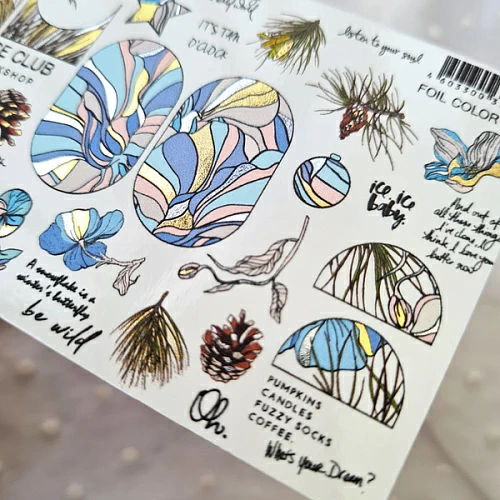 IT'S 5 AM
O'CLOCK
listen to your soul
FOIL COLOR
CLUB
ice ice
baby.
And out of
all these things
I've done I
think I love you
better now
A snowflake is a
winter's butterfly
be wild
Oh.
PUMPKINS
CANDLES
FUZZY SOCKS
COFFEE.
What's Your Dream?